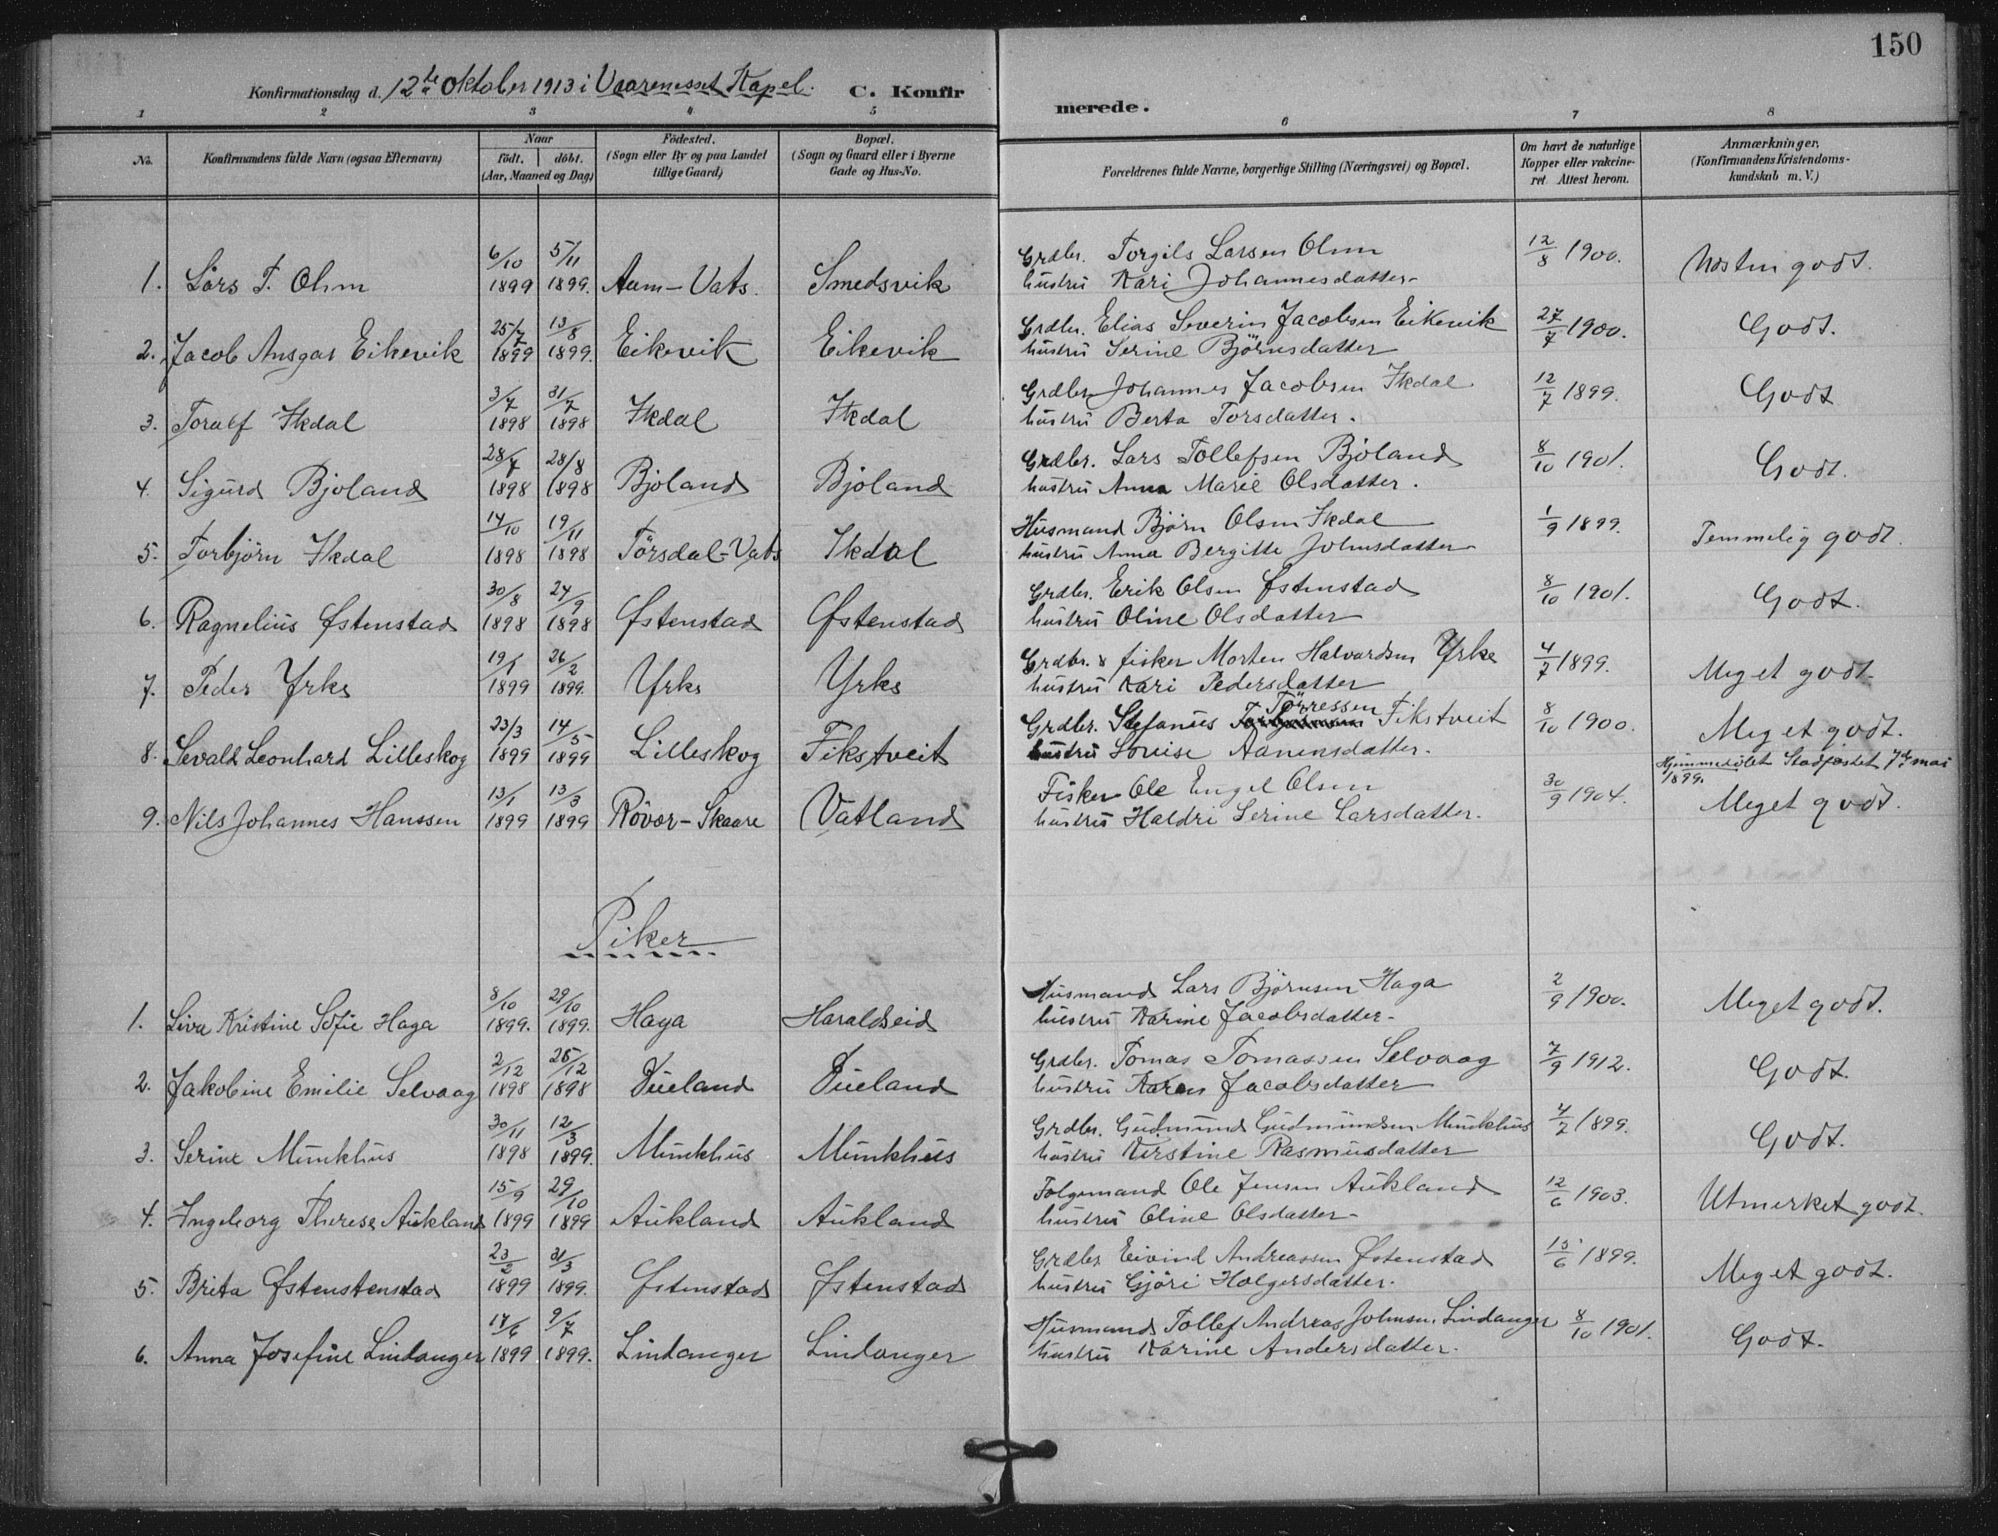 150
Konfirmationsdag d. 12te Oktober 1913 i Vaarenesset Kapel. C. Konfirmerede.
1 2 3 4 5 6 7 8
No. Konfirmandens fulde Navn (ogsaa Efternavn) Naar födt. döbt. (Aar, Maaned og Dag) Födested. (Sogn eller By og paa Landet tillige Gaard) Bopæl. (Sogn og Gaard eller i Byerne Gade og Hus-No. Forældrenes fulde Navne, borgerlige Stilling (Næringsvei) og Bopæl. Om havt de naturlige Kopper eller vakcineret Attest herom. Anmærkninger. (Konfirmandens Kristendomskundskab m. V.)
1. Lars T. Ohm 6/10 1899 5/11 1899. Aam-Vats. Smedsvik Grdbr. Torgils Larsen Ohm 12/8 1900. Næsten godt.
hustru Kari Johannesdatter
2. Jacob Ansgar Eikevik 25/7 1899 13/8 1899. Eikevik Eikevik Grdbr. Elias Severin Jacobsen Eikevik 27/7 1900. Godt.
hustru Serine Björnsdatter
3. Toralf Ikdal 3/7 1898 31/7 1898 Ikdal Ikdal Grdbr. Johannes Jacobsen Ikdal 12/7 1899. Godt
hustru Berta Torsdatter.
4. Sigurd Bjoland 28/7 1898 28/8 1898 Bjoland Bjoland Grdbr. Lars Tollefsen Bjoland 8/10 1901. Godt.
hustru Anna Marie Olsdatter.
5. Torbjörn Ikdal 14/10 1898 19/11 1898 Törsdal-Vats Ikdal Husmand Bjørn Olsen Ikdal 1/9 1899. Temmelig godt.
hustru Anna Bergitte Johnsdatter
6. Ragnelius Østenstad 30/8 1898 24/9 1898 Østenstad Østenstad Grdbr. Erik Olsen Østenstad 8/10 1901. Godt.
hustru Oline Olsdatter
7. Peder Yrke 19/1 1899 26/2 1899. Yrke Yrke Grdbr. & fisker Morten Halvardsen Yrke 4/7 1899. Meget godt.
hustru Kari Pedersdatter
8. Sevald Leonhard Lilleskog 23/3 1899 14/5 1899 Lilleskog Fikstveit Grdbr. Stefanus Törressen Fikstveit 8/10 1900. Meget godt.
hustru Lovise Aanensdatter. Hjemmedöbt Stadfæstet 7de mai 1899.
9. Nils Johannes Hanssen 13/1 1899 13/3 1899 Rövær-Skaare Vatland Fisker Ole Engel Olsen 30/9 1904. Meget godt.
hustru Haldri Serine Larsdatter.
Piker
1. Liva Kristine Sofie Haga 8/10 1899. 29/10 1899. Haga Haraldseid Husmand Lars Bjørnsen Haga 2/9 1900. Meget godt.
hustru Karine Jacobsdatter
2. Jakobine Emilie Selvaag 2/12 1898 25/12 1898 Dueland Dueland Grdbr. Tomas Tomassen Selvaag 7/9 1912. Godt.
hustru Karen Jacobsdatter
3. Serine Munkhus 30/11 1898 12/3 1899. Munkhus Munkhus Grdbr. Gudmund Gudmundsen Munkhus 4/7 1899. Godt.
hustru Kirstine Rasmusdatter
4. Ingeborg Therese Aukland 15/9 1899 29/10 1899 Aukland Aukland Folgemand Ole Jensen Aukland 12/6 1903. Utmerket godt.
hustru Oline Olsdatter
5. Brita Østenstenstad 23/2 1899 31/3 1899. Østenstad Østenstad Grdbr Eivind Andreassen Østenstad 15/6 1899. Meget godt.
hustru Gjöri Holgersdatter.
6. Anna Josefine Lindanger 17/6 1899 9/7 1899. Lindanger Lindanger Husmand Tollef Andreas Johnsen. Lindanger 8/10 1901. Godt.
hustru Karine Andersdatter.